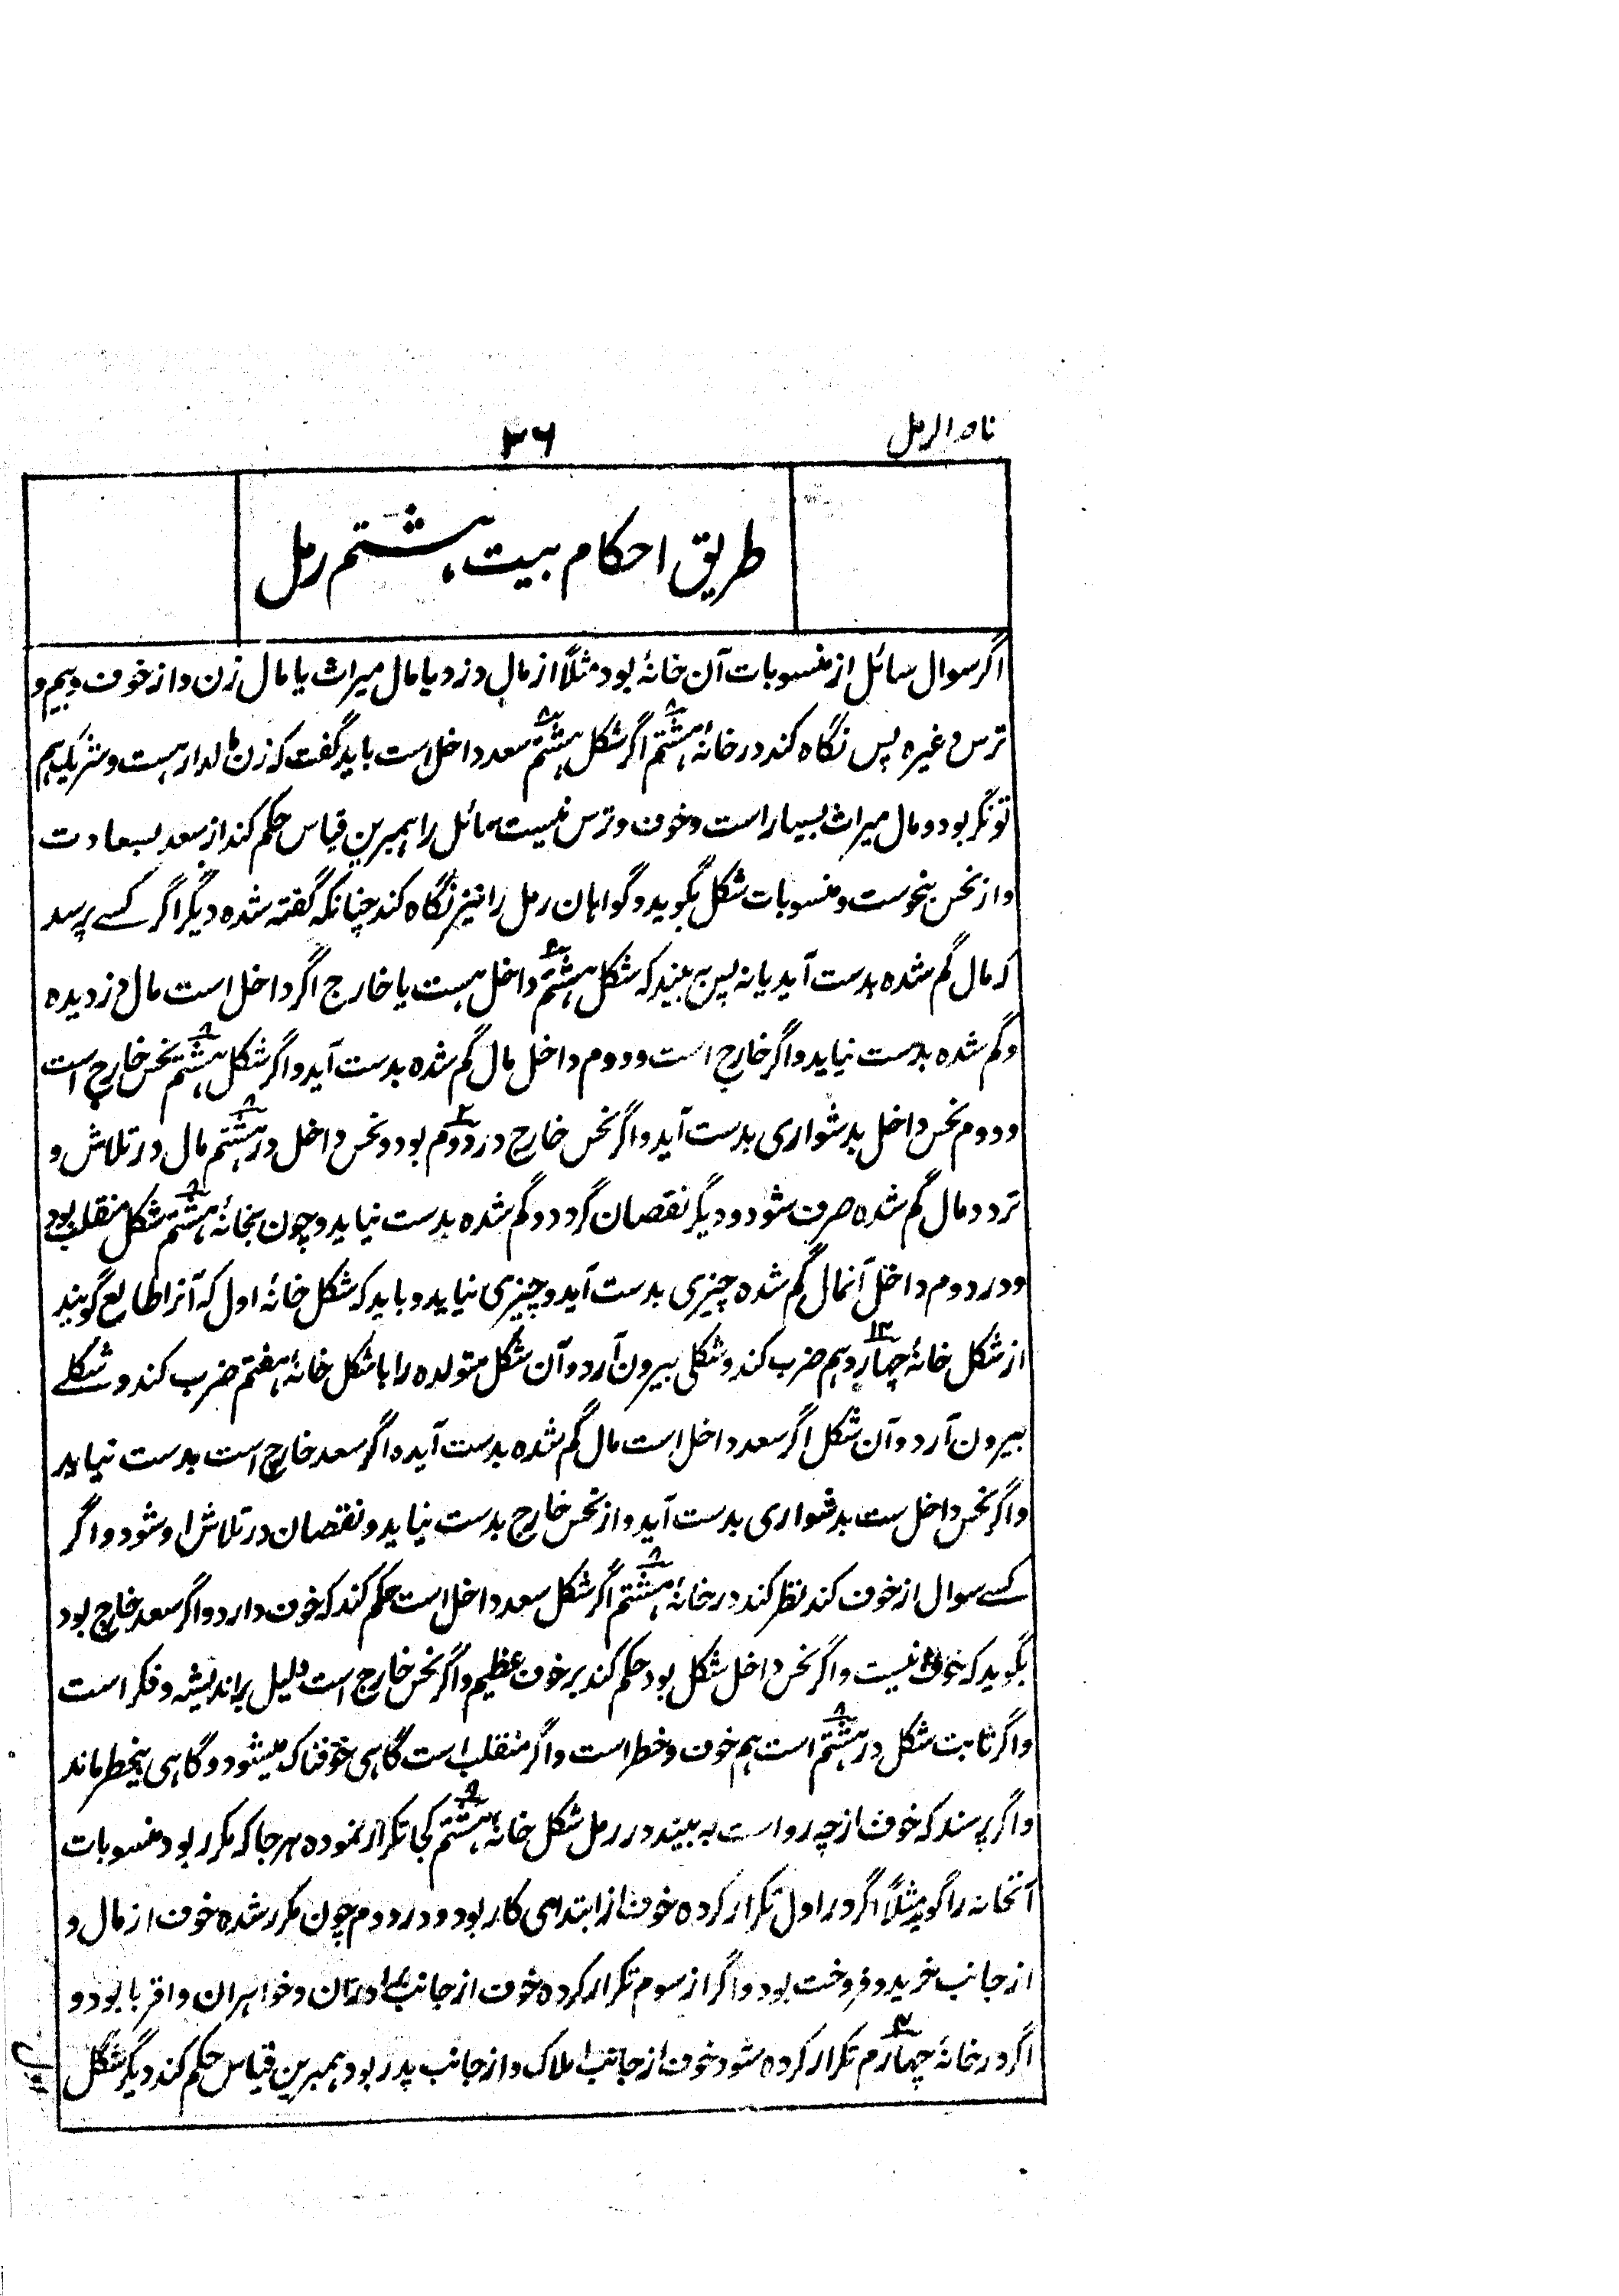 ناصر الرمل
۳۶
طریق احکام بیت ہشتم رمل
اگر سوال سائل از منسوبات آن خانهٔ بود مثلاً از مال دزد یا مال میراث یا مال زن و از خوف و بیم و
ترس و غیره پس نگاه کند در خانهٔ ہشتم ۸ اگر شکل ہشتم ۸ سعد داخل است باید گفت که زن مالدار ہست و شریک ہم
تونگر بود و مال میراث بسیار است و خوف و ترس نیست سائل را ہمبرین قیاس حکم کند از سعد بسعادت
و از نحس بنحوست و منسوبات شکل بگوید و گواہان رمل را نیز نگاه کند چنانکه گفته شده دیگر اگر کسے پرسد
که مال گم شده بدست آید یا نه پس به بیند که شکل ہشتم ۸ داخل ہست یا خارج اگر داخل است مال دزدیده
و گم شده بدست نیاید و اگر خارج است و دوم داخل مال گم شده بدست آید و اگر شکل ہشتم ۸ نحس خارج است
و دوم نحس داخل بدشواری بدست آید و اگر نحس خارج در دوم ۲ بود و نحس داخل در ہشتم ۸ مال در تلاش و
تردد مال گم شده صرف شود و دیگر نقصان گردد و گم شده بدست نیاید و چون بخانهٔ ہشتم ۸ شکل منقلب بود
و در دوم داخل آنمال گم شده چیزی بدست آید و چیزی نیاید و باید که شکل خانهٔ اول که آنرا طالع گویند
از شکل خانهٔ چہاردہم ۱۴ ضرب کند و شکلی بیرون آرد و آن شکل متولده را با شکل خانهٔ ہفتم ضرب کند و شکلے
بیرون آرد و آن شکل اگر سعد داخل است مال گم شده بدست آید و اگر سعد خارج است بدست نیاید
و اگر نحس داخل ست بدشواری بدست آید و از نحس خارج بدست نیاید و نقصان در تلاش او شود و اگر
کسے سوال از خوف کند نظر کند در خانهٔ ہشتم ۸ اگر شکل سعد داخل است حکم کند که خوف دارد و اگر سعد خارج بود
بگوید که خوف نیست و اگر نحس داخل شکل بود حکم کند بر خوف عظیم و اگر نحس خارج است دلیل بر اندیشه و فکر است
و اگر ثابت شکل در ہشتم ۸ است ہم خوف و خطر است و اگر منقلب است گاہی خوفناک میشود و گاہی بیخطر ماند
و اگر پرسند که خوف از چه رو است به بیند در رمل شکل خانهٔ ہشتم ۸ کجا تکرار نموده ہر جا که مکرر بود منسوبات
آنخانه را گوید مثلاً اگر در اول تکرار کرده خوف از ابتدای کار بود و در دوم چون مکرر شده خوف از مال و
از جانب خرید و فروخت بود و اگر از سوم تکرار کرده خوف از جانب برادران و خواہران و اقربا بود و
اگر در خانهٔ چہارم ۴ تکرار کرده شود خوف از جانب املاک و از جانب پدر بود ہمبرین قیاس حکم کند دیگر شکل